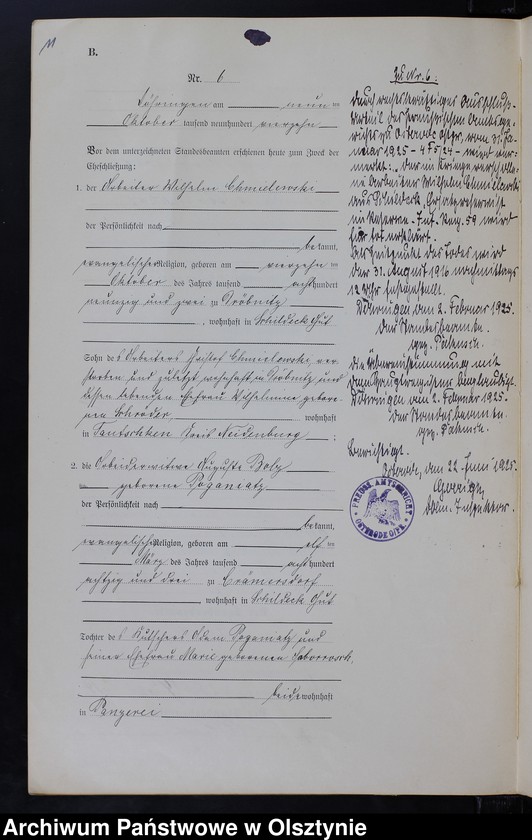 11
B.
Nr. 6
Döhringen am neun ten
Oktober tausend neunhundert vierzehn
Vor dem unterzeichneten Standesbeamten erschienen heute zum Zweck der
Eheschließung:
1. der Arbeiter Wilhelm Chmielewski
der Persönlichkeit nach
be kannt,
evangelischer Religion, geboren am vierzehn ten
Oktober des Jahres tausend acht hundert
neunzig und zwei zu Gröbnitz
, wohnhaft in Schildeck Gut
Sohn des Arbeiters Kristof Chmielowski, ver-
storben und zuletzt wohnhaft in Gröbnitz und
dessen lebenden Ehefrau Wilhelmine gebore-
nen Schröder wohnhaft
in Tautschken Kreis Neidenburg ;
2. die Arbeiterwitwe Auguste Boly
geborene Poganiatz
der Persönlichkeit nach
be kannt,
evangelischer Religion, geboren am elf ten
März des Jahres tausend acht hundert
achtzig und drei zu Crämersdorf
, wohnhaft in Schildeck Gut
Tochter des Kutschers Adam Poganiatz und
seiner Ehefrau Marie geborenen
beide wohnhaft
in Panzerei
Zu Nr. 6:
Durch rechtskräftiges Ausschluß-
urteil des Preußischen Amtsge-
richts zu Osterode Ostpr. vom 31. Ja-
nuar 1925 - 4 F 5/24 - wird ver-
merkt: Der im Kriege verscholle-
ne Arbeiter Wilhelm Chmielewski
aus Schildeck, Ersatzreservist
im Reserve-Inf. Reg. 59 wird
für tot erklärt.
Als Zeitpunkt des Todes wird
der 31. August 1916 nachmittags
12 Uhr festgestellt.
Döhringen am 2. Februar 1925.
Der Standesbeamte.
gez.
Die Übereinstimmung mit
dem Hauptregister beglaubigt.
Döhringen am 2. Februar 1925.
Der Standesbeamte.
gez.
Berichtigt.
Osterode, den 22. Juni 1925.
PREUSS. AMTSGERICHT
OSTERODE O/PR.
Archiwum Państwowe w Olsztynie